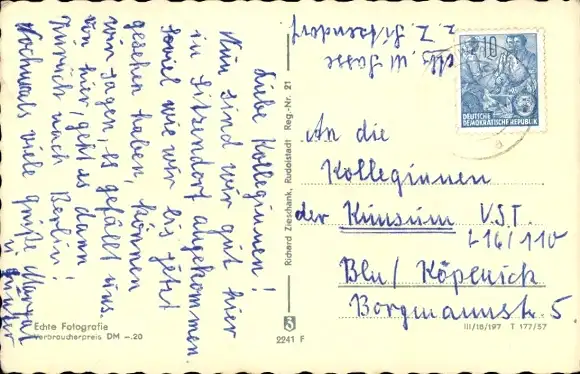 Liebe Kolleginnen!
Nun sind wir gut hier
in Sitzendorf angekommen.
Soviel wie wir bis jetzt
gesehen haben, können
wir sagen, es gefällt uns.
Von hier, geht es dann
zurück nach Berlin!
Nochmals viele Grüße
u. Günter
z. Z. Sitzendorf
DEUTSCHE
DEMOKRATISCHE REPUBLIK
10
An die
Kolleginnen
der Konsum VST.
L16/110
Bln/ Köpenick
Borgmannstr. 5
Richard Zieschank, Rudolstadt Reg.-Nr. 21
Echte Fotografie
Verbraucherpreis DM –.20
2241 F
III/18/197 T 177/57